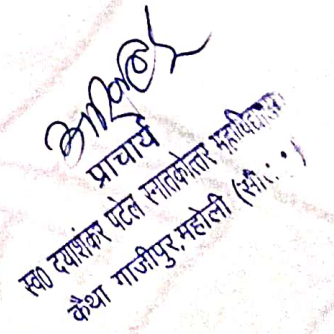 प्राचार्य
स्व० दयाशंकर पटेल स्नातकोत्तर महाविद्यालय
कैथा गाजीपुर,महोली (सी